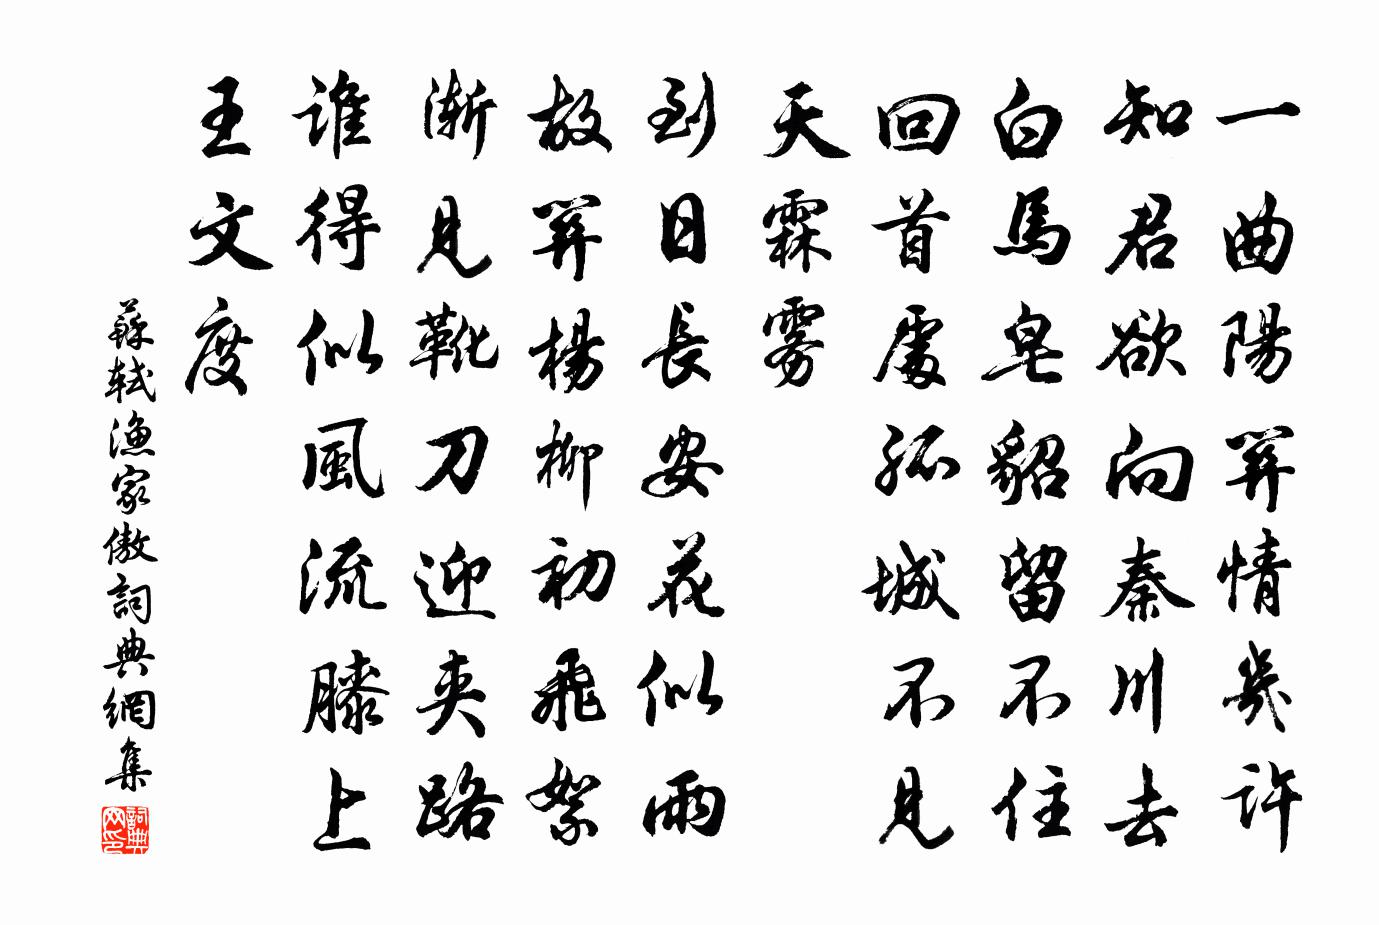 一曲陽關情幾許
知君欲向秦川去
白馬皂貂留不住
回首處孤城不見
天霖霧
到日長安花似雨
故關楊柳初飛絮
漸見靴刀迎夾路
誰得似風流膝上
王文度
蘇軾漁家傲詞典網集
詞典网印